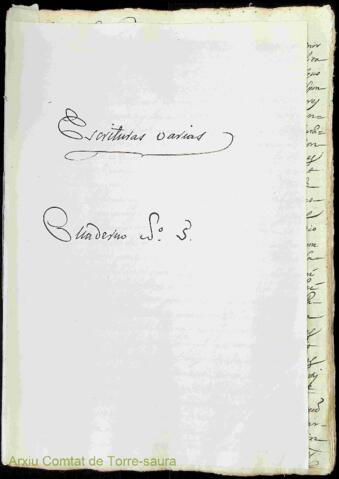 Escrituras varias
Cuaderno Nº. 3.
Arxiu Comtat de Torre-saura